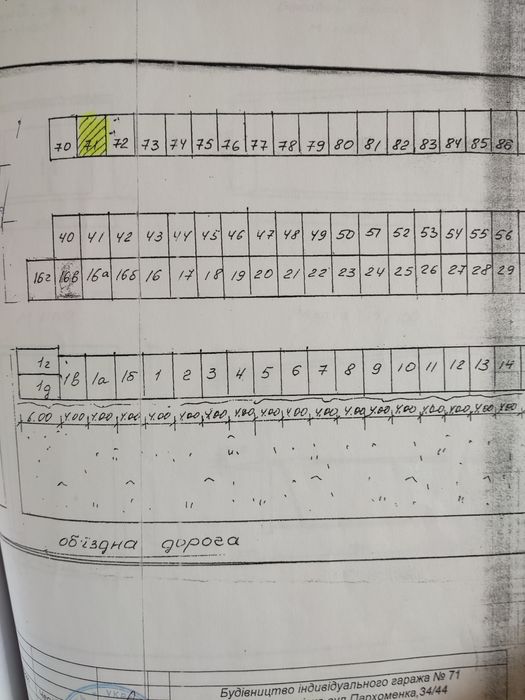 70 71 72 73 74 75 76 77 78 79 80 81 82 83 84 85 86
40 41 42 43 44 45 46 47 48 49 50 51 52 53 54 55 56
16г 16в 16а 16б 16 17 18 19 20 21 22 23 24 25 26 27 28 29
1г
1д 1в 1а 1б 1 2 3 4 5 6 7 8 9 10 11 12 13 14
6.00 4.00 4.00 4.00 4.00 4.00 4.00 4.00 4.00 4.00 4.00 4.00 4.00 4.00 4.00 4.00 4.00
об'їздна дорога
Будівництво індивідуального гаража № 71
вул. Пархоменка, 34/44